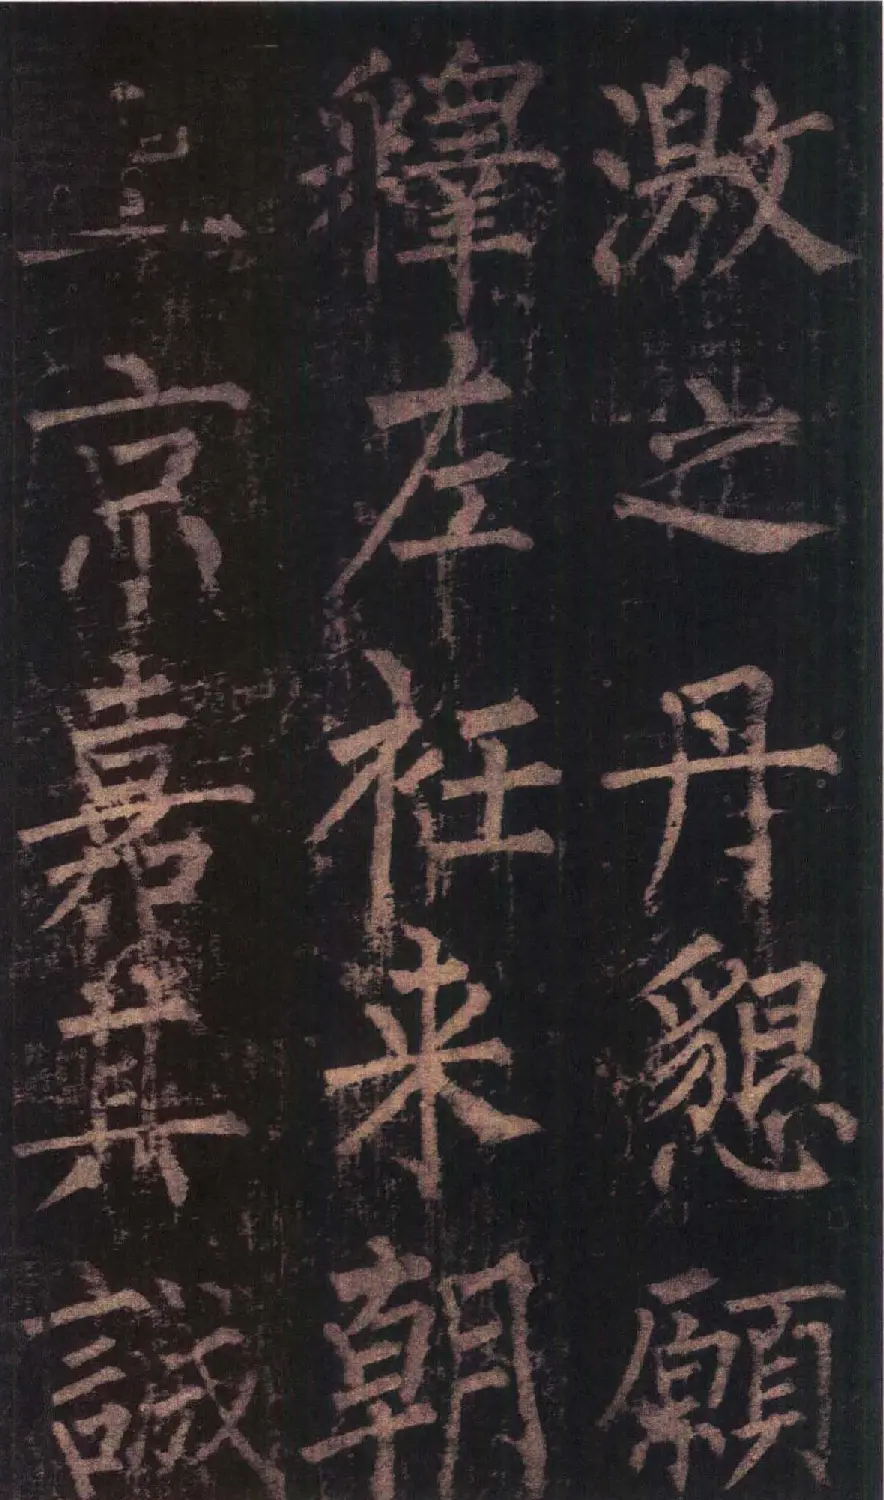 激之丹懇願
釋左衽来朝
上京嘉其誠